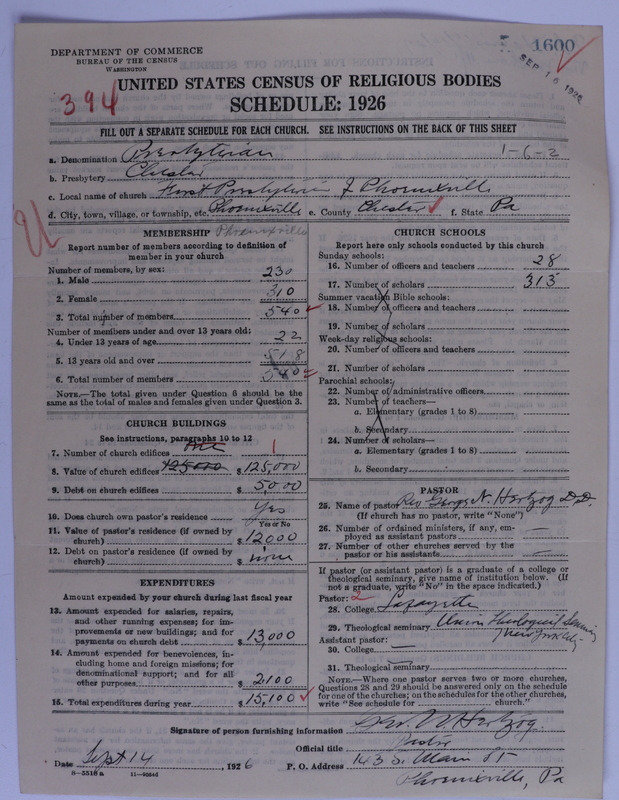 DEPARTMENT OF COMMERCE
BUREAU OF THE CENSUS
WASHINGTON
1600
SEP 16 1926
394
UNITED STATES CENSUS OF RELIGIOUS BODIES
SCHEDULE: 1926
FILL OUT A SEPARATE SCHEDULE FOR EACH CHURCH. SEE INSTRUCTIONS ON THE BACK OF THIS SHEET
a. Denomination Presbyterian 1-6-2
b. Presbytery Chester
c. Local name of church First Presbyterian of Phoenixville
d. City, town, village, or township, etc. Phoenixville e. County Chester f. State Pa
MEMBERSHIP Phoenixville
Report number of members according to definition of
member in your church
Number of members, by sex:
1. Male 230
2. Female 310
3. Total number of members 540
Number of members under and over 13 years old:
4. Under 13 years of age 22
5. 13 years old and over 518
6. Total number of members 540
NOTE.—The total given under Question 6 should be the
same as the total of males and females given under Question 3.
CHURCH BUILDINGS
See instructions, paragraphs 10 to 12
7. Number of church edifices One 1
8. Value of church edifices 125,000 $ 125,000
9. Debt on church edifices $ 5000
10. Does church own pastor's residence Yes
Yes or No
11. Value of pastor's residence (if owned by
church) $ 12000
12. Debt on pastor's residence (if owned by
church) $ none
EXPENDITURES
Amount expended by your church during last fiscal year
13. Amount expended for salaries, repairs,
and other running expenses; for im-
provements or new buildings; and for
payments on church debt $ 13,000
14. Amount expended for benevolences, in-
cluding home and foreign missions; for
denominational support; and for all
other purposes $ 2100
15. Total expenditures during year $ 15,100
CHURCH SCHOOLS
Report here only schools conducted by this church
Sunday schools:
16. Number of officers and teachers 28
17. Number of scholars 313
Summer vacation Bible schools:
18. Number of officers and teachers
19. Number of scholars
Week-day religious schools:
20. Number of officers and teachers
21. Number of scholars
Parochial schools:
22. Number of administrative officers
23. Number of teachers—
a. Elementary (grades 1 to 8)
b. Secondary
24. Number of scholars—
a. Elementary (grades 1 to 8)
b. Secondary
PASTOR
25. Name of pastor Rev George N. Hartzog D.D.
(If church has no pastor, write "None")
26. Number of ordained ministers, if any, em-
ployed as assistant pastors —
27. Number of other churches served by the
pastor or his assistants —
If pastor (or assistant pastor) is a graduate of a college or
theological seminary, give name of institution below. (If
not a graduate, write "No" in the space indicated.)
Pastor: 2
28. College Lafayette
29. Theological seminary Union Theological Seminary
New York City
Assistant pastor:
30. College —
31. Theological seminary
NOTE.—Where one pastor serves two or more churches,
Questions 28 and 29 should be answered only on the schedule
for one of the churches; on the schedules for the other churches,
write "See schedule for church."
Signature of person furnishing information Geo. N. Hartzog
Official title Pastor
Date Sept 14, 1926 P. O. Address 143 S. Main St
Phoenixville, Pa
8—5518 a